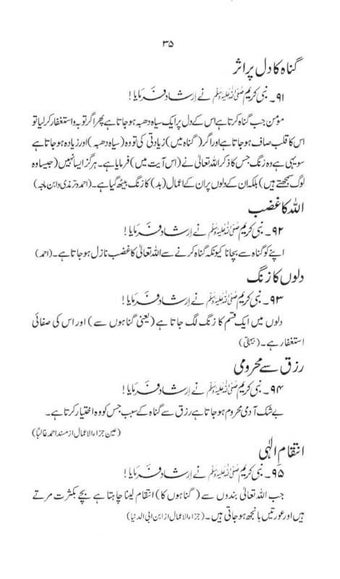 ۳۵
گناہ کا دل پر اثر
۹۱۔ نبی کریم ﷺ نے ارشاد فرمایا!
مؤمن جب گناہ کرتا ہے اس کے دل پر ایک سیاہ دھبہ ہو جاتا ہے پھر اگر توبہ و استغفار کر لیا تو
اس کا قلب صاف ہو جاتا ہے اور اگر (گناہ میں) زیادتی کی تو وہ (سیاہ دھبہ) اور زیادہ ہو جاتا ہے
سو یہی ہے وہ زنگ جس کا ذکر اللہ تعالیٰ نے (اس آیت میں) فرمایا ہے۔ ہرگز ایسا نہیں (جیسا وہ
لوگ سمجھتے ہیں) بلکہ ان کے دلوں پر ان کے اعمال (بد) کا زنگ بیٹھ گیا ہے۔ (احمد و ترمذی و ابن ماجہ)
اللہ کا غضب
۹۲۔ نبی کریم ﷺ نے ارشاد فرمایا!
اپنے کو گناہ سے بچانا کیونکہ گناہ کرنے سے اللہ تعالیٰ کا غضب نازل ہو جاتا ہے۔ (احمد)
دلوں کا زنگ
۹۳۔ نبی کریم ﷺ نے ارشاد فرمایا!
دلوں میں ایک قسم کا زنگ لگ جاتا ہے (یعنی گناہوں سے) اور اس کی صفائی
استغفار ہے۔ (بیہقی)
رزق سے محرومی
۹۴۔ نبی کریم ﷺ نے ارشاد فرمایا!
بے شک آدمی محروم ہو جاتا ہے رزق سے گناہ کے سبب جس کو وہ اختیار کرتا ہے۔
(عین جزاء الاعمال از مسند احمد غالباً)
انتقام الٰہی
۹۵۔ نبی کریم ﷺ نے ارشاد فرمایا!
جب اللہ تعالیٰ بندوں سے (گناہوں کا) انتقام لینا چاہتا ہے بچے بکثرت مرتے
ہیں اور عورتیں بانجھ ہو جاتی ہیں۔ (جزاء الاعمال از ابن ابی الدنیا)